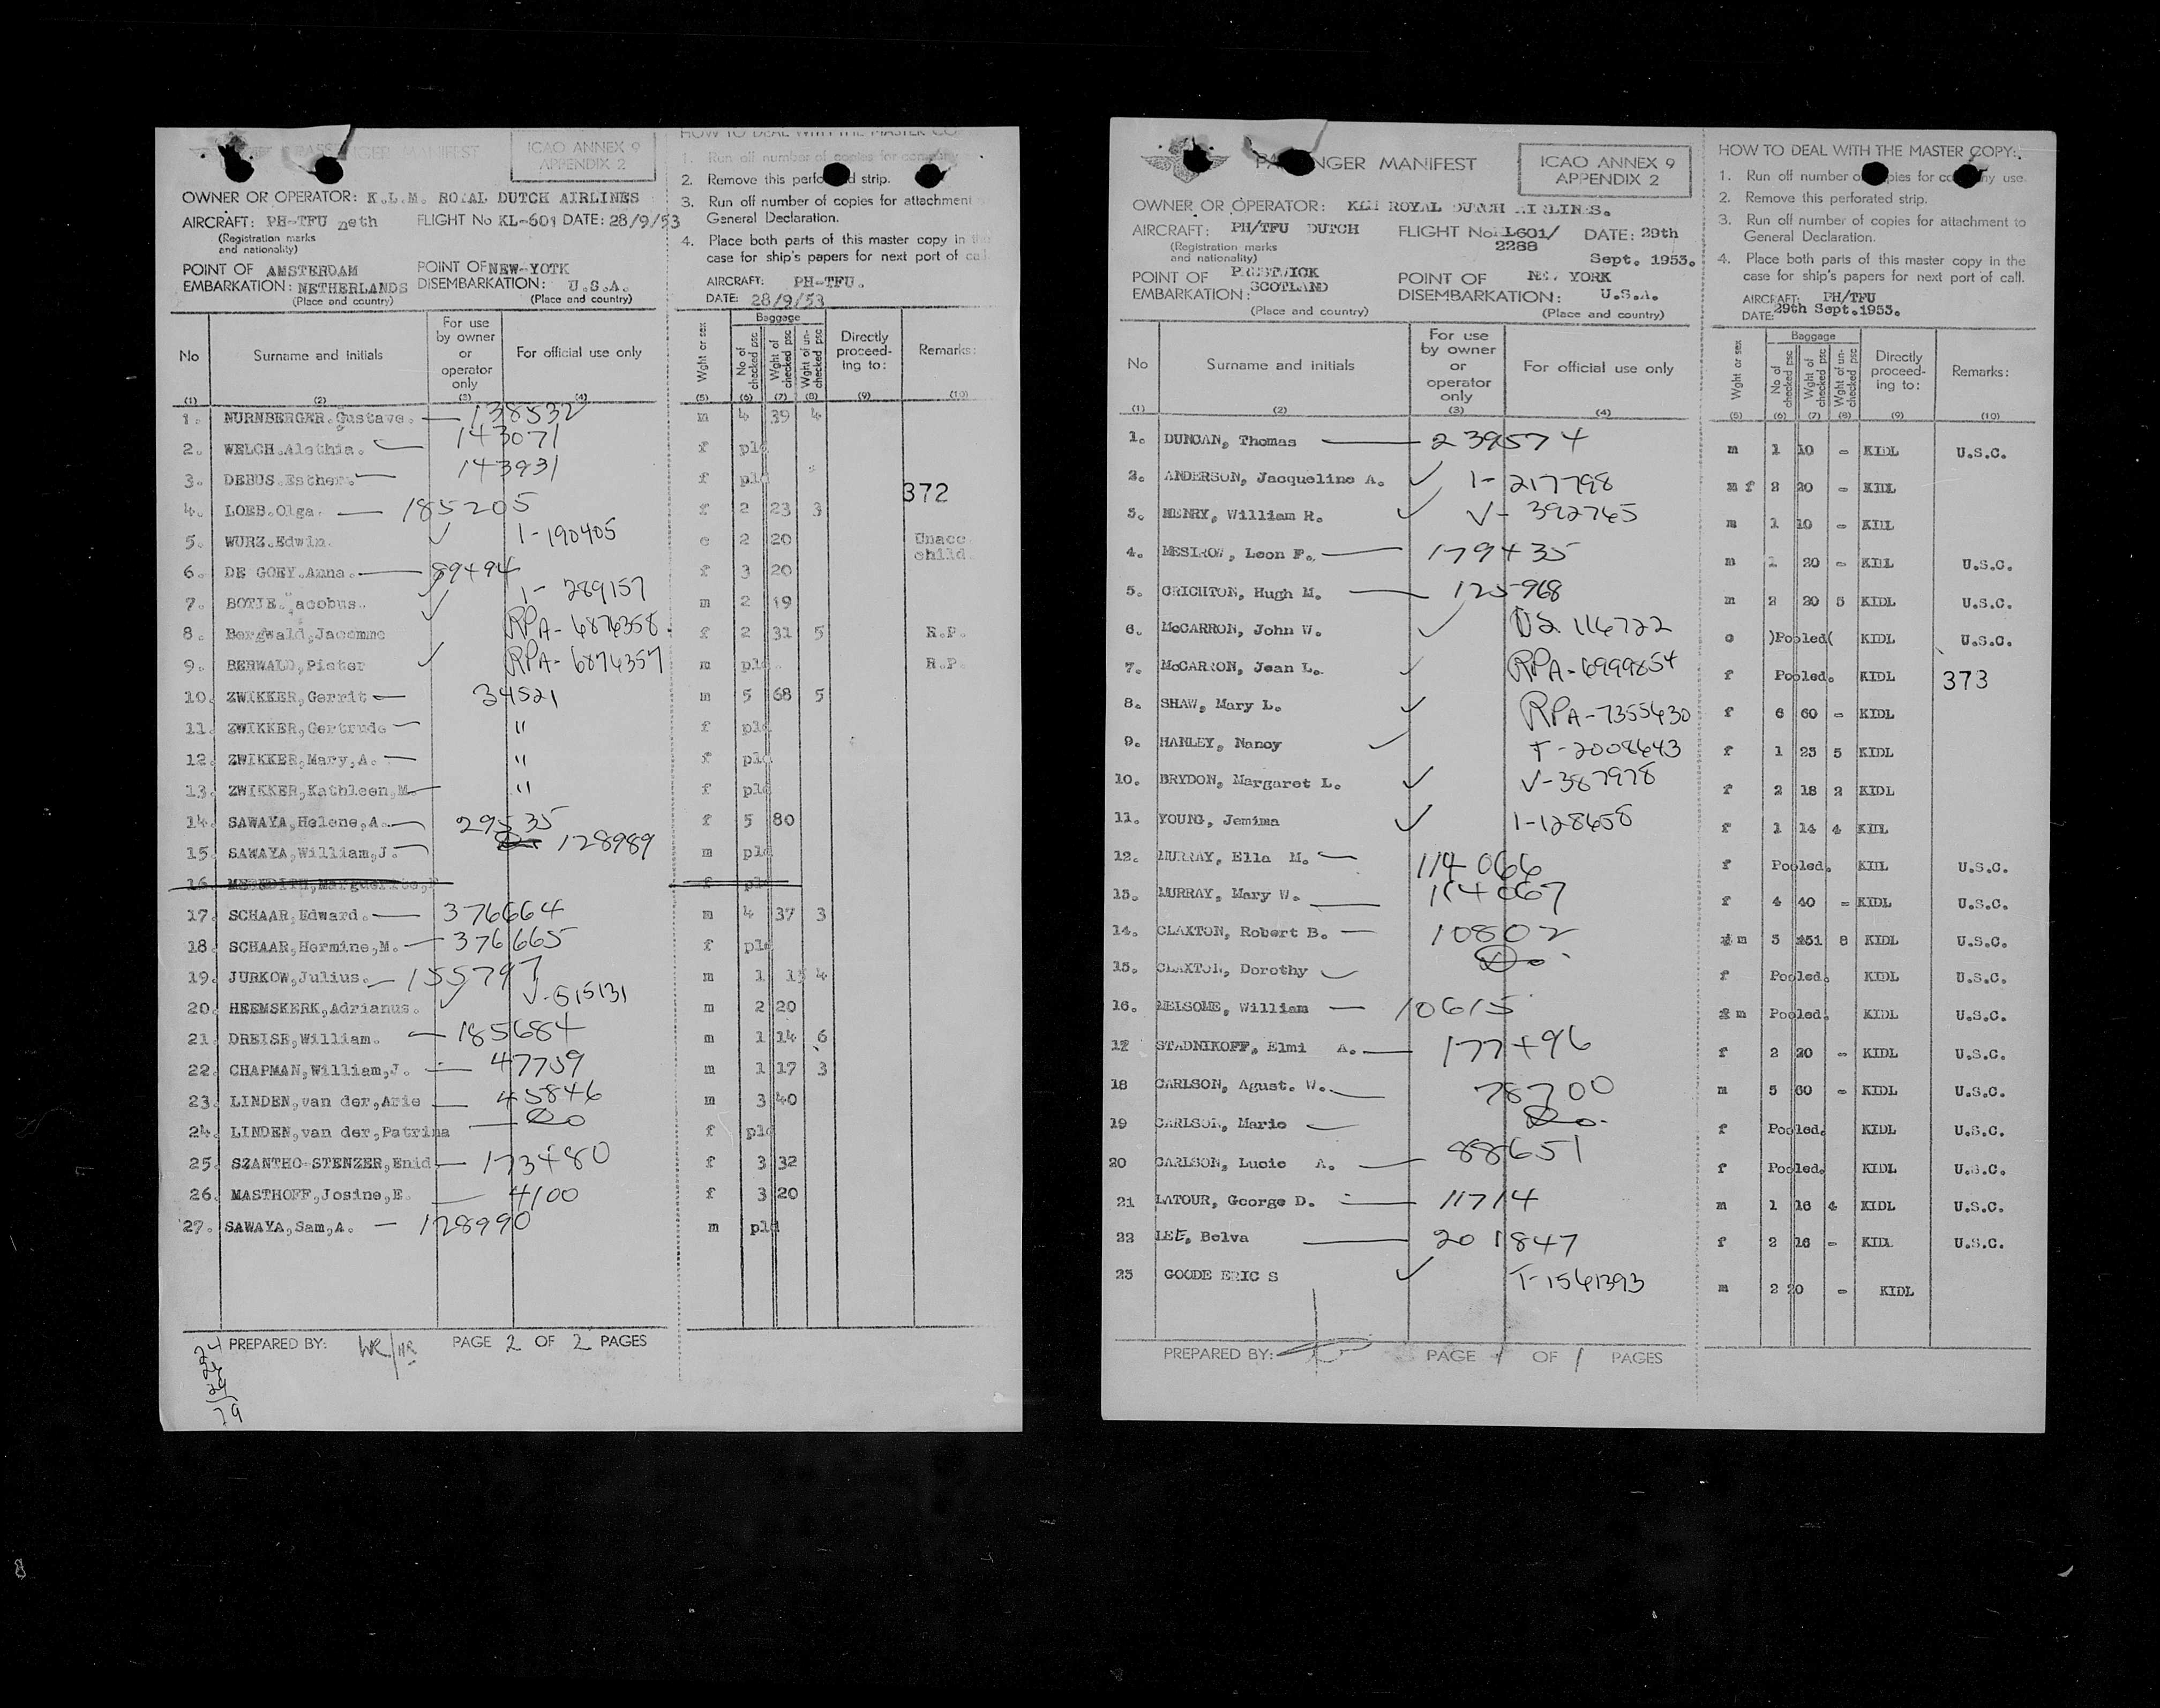 PASSENGER MANIFEST
ICAO ANNEX 9
APPENDIX 2
OWNER OR OPERATOR: K.L.M. ROYAL DUTCH AIRLINES
AIRCRAFT: PH-TFU neth FLIGHT No KL-601 DATE: 28/9/53
(Registration marks
and nationality)
POINT OF AMSTERDAM POINT OF NEW-YOTK
EMBARKATION: NETHERLANDS DISEMBARKATION: U.S.A.
(Place and country) (Place and country)
HOW TO DEAL WITH THE MASTER CO
1. Run off number of copies for company
2. Remove this perfo d strip.
3. Run off number of copies for attachment
General Declaration.
4. Place both parts of this master copy in the
case for ship's papers for next port of cal
AIRCRAFT: PH-TFU.
DATE: 28/9/53
No Surname and initials For use by owner or operator only For official use only Wght or sex Baggage No of checked psc Wght of checked psc Wght of un-checked psc Directly proceed-ing to: Remarks:
(1) (2) (3) (4) (5) (6) (7) (8) (9) (10)
1. NURNBERGER.Gustave. — 138532 m 4 39 4
2. WELCH.Alethia. — 143071 f pld
3. DEBUS.Esther. — 143931 f pld
372
4. LOEB.Olga. — 185205 f 2 23 3
5. WURZ.Edwin. ✓ 1-190405 c 2 20 Unacc child.
6. DE GOEY.Anna. — 89494 f 3 20
7. BOTJE. acobus. ✓ 1- 289157 m 2 19
8. Bergwald,Jacomme RPA-6876358. f 2 31 5 R.P.
9. BERWALD,Pieter ✓ RPA-6876357 m pld. R.P.
10. ZWIKKER,Gerrit — 34521 m 5 68 5
11. ZWIKKER,Gertrude — " f pld
12. ZWIKKER,Mary,A. — " f pld
13. ZWIKKER,Kathleen,M. — " f pld
14. SAWAYA,Helene,A. — 29535 f 5 80
15. SAWAYA,William,J. — 128989 m pld
16. MEREDITH,Marguerite, f pld
17. SCHAAR,Edward. — 376664 m 4 37 3
18. SCHAAR,Hermine,M. — 376665 f pld
19. JURKOW,Julius. — 155797 m 1 15 4
20. HEEMSKERK,Adrianus. ✓ V-515131 m 2 20
21. DREISE,William. — 185684 m 1 14 6
22. CHAPMAN,William,J. — 47759 m 1 17 3
23. LINDEN,van der,Arie — 45846 m 3 40
24. LINDEN,van der,Patrina — Do f pld
25. SZANTHO-STENZER,Enid — 173480 f 3 32
26. MASTHOFF,Josine,E. — 4100 f 3 20
27. SAWAYA,Sam,A. — 128990 m pld
PREPARED BY: WR/HR PAGE 2 OF 2 PAGES
PA NGER MANIFEST
ICAO ANNEX 9
APPENDIX 2
OWNER OR OPERATOR: KLM ROYAL DUTCH AIRLINES.
AIRCRAFT: PH/TFU DUTCH FLIGHT No: L601/ 2288 DATE: 29th Sept. 1953.
(Registration marks
and nationality)
POINT OF PRESTWICK POINT OF NEW YORK
EMBARKATION: SCOTLAND DISEMBARKATION: U.S.A.
(Place and country) (Place and country)
HOW TO DEAL WITH THE MASTER COPY:
1. Run off number o pies for co ny use.
2. Remove this perforated strip.
3. Run off number of copies for attachment to
General Declaration.
4. Place both parts of this master copy in the
case for ship's papers for next port of call.
AIRCRAFT: PH/TFU
DATE: 29th Sept.1953.
No Surname and initials For use by owner or operator only For official use only Wght or sex Baggage No of checked psc Wght of checked psc Wght of un-checked psc Directly proceed-ing to: Remarks:
(1) (2) (3) (4) (5) (6) (7) (8) (9) (10)
1. DUNCAN, Thomas — 239574 m 1 10 - KIDL U.S.C.
2. ANDERSON, Jacqueline A. ✓ 1-217798 m f 2 20 - KIDL
3. HENRY, William R. ✓ V-392765 m 1 10 - KIDL
4. MESIROW, Leon F. — 179435 m 1 20 - KIDL U.S.C.
5. CRICHTON, Hugh M. — 125968 m 2 20 5 KIDL U.S.C.
6. McCARRON, John W. ✓ US 116722 c )Pooled( KIDL U.S.C.
7. McCARRON, Jean L. ✓ RPA-6999854 f Pooled. KIDL 373
8. SHAW, Mary L. ✓ RPA-7355430 f 6 60 - KIDL
9. HANLEY, Nancy ✓ T-2008643 f 1 25 5 KIDL
10. BRYDON, Margaret L. ✓ V-387978 f 2 18 2 KIDL
11. YOUNG, Jemima ✓ 1-128658 f 1 14 4 KIDL
12. MURRAY, Ella M. — 114066 f Pooled. KIDL U.S.C.
13. MURRAY, Mary W. — 114067 f 4 40 - KIDL U.S.C.
14. CLAXTON, Robert B. — 10802 m 5 151 8 KIDL U.S.C.
15. CLAXTON, Dorothy — Do. f Pooled. KIDL U.S.C.
16. MEISOME, William — 10615 m Pooled. KIDL U.S.C.
17 STADNIKOFF, Elmi A. — 177496 f 2 20 - KIDL U.S.C.
18 CARLSON, Agust. W. — 78700 m 5 60 - KIDL U.S.C.
19 CARLSON, Marie — Do. f Pooled. KIDL U.S.C.
20 CARLSON, Lucie A. — 88651 f Pooled. KIDL U.S.C.
21 LATOUR, George D. — 11714 m 1 16 4 KIDL U.S.C.
22 LEE, Belva — 201847 f 2 16 - KIDL U.S.C.
23 GOODE ERIC S ✓ T-1561393 m 2 20 - KIDL
PREPARED BY: PAGE 1 OF 1 PAGES